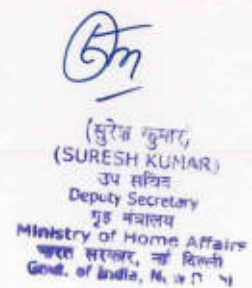 (सुरेश कुमार)
(SURESH KUMAR)
उप सचिव
Deputy Secretary
गृह मंत्रालय
Ministry of Home Affairs
भारत सरकार, नई दिल्ली
Govt. of India, N